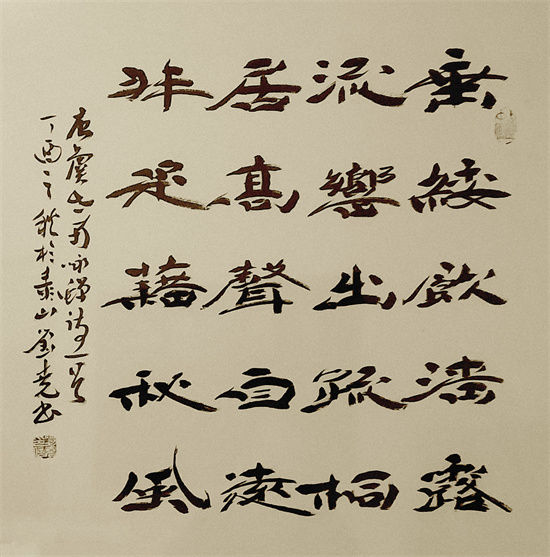 垂緌飲清露
流響出疏桐
居高聲自遠
非是藉秋風
唐虞世南咏蟬詩一首
丁酉之秋於泰山